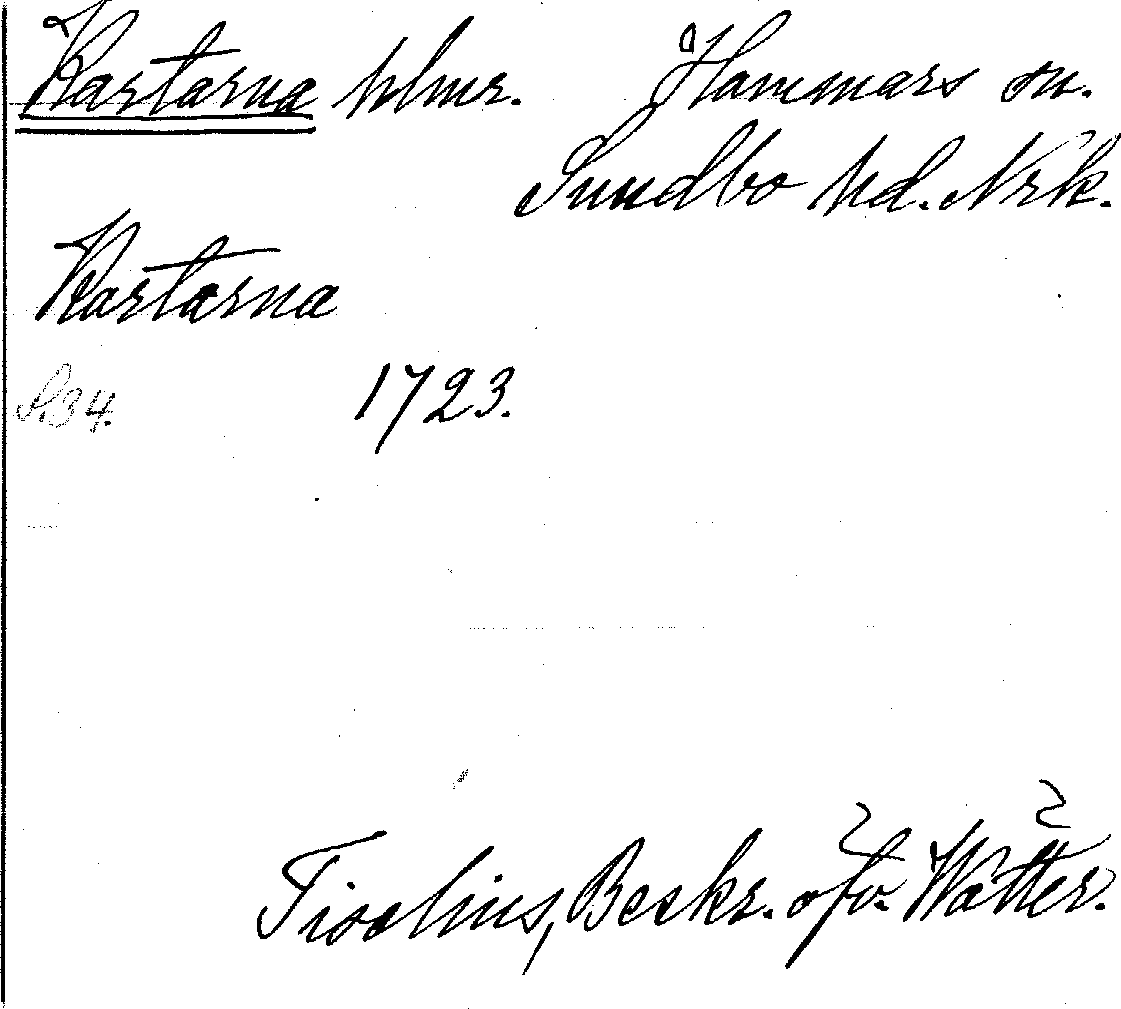 Kartarna hlmr. Hammars sn.
Sundbo hd. Nrk.
Kartarna
S.34. 1723.
Tiselius, Beskr. öfv. Wätter.